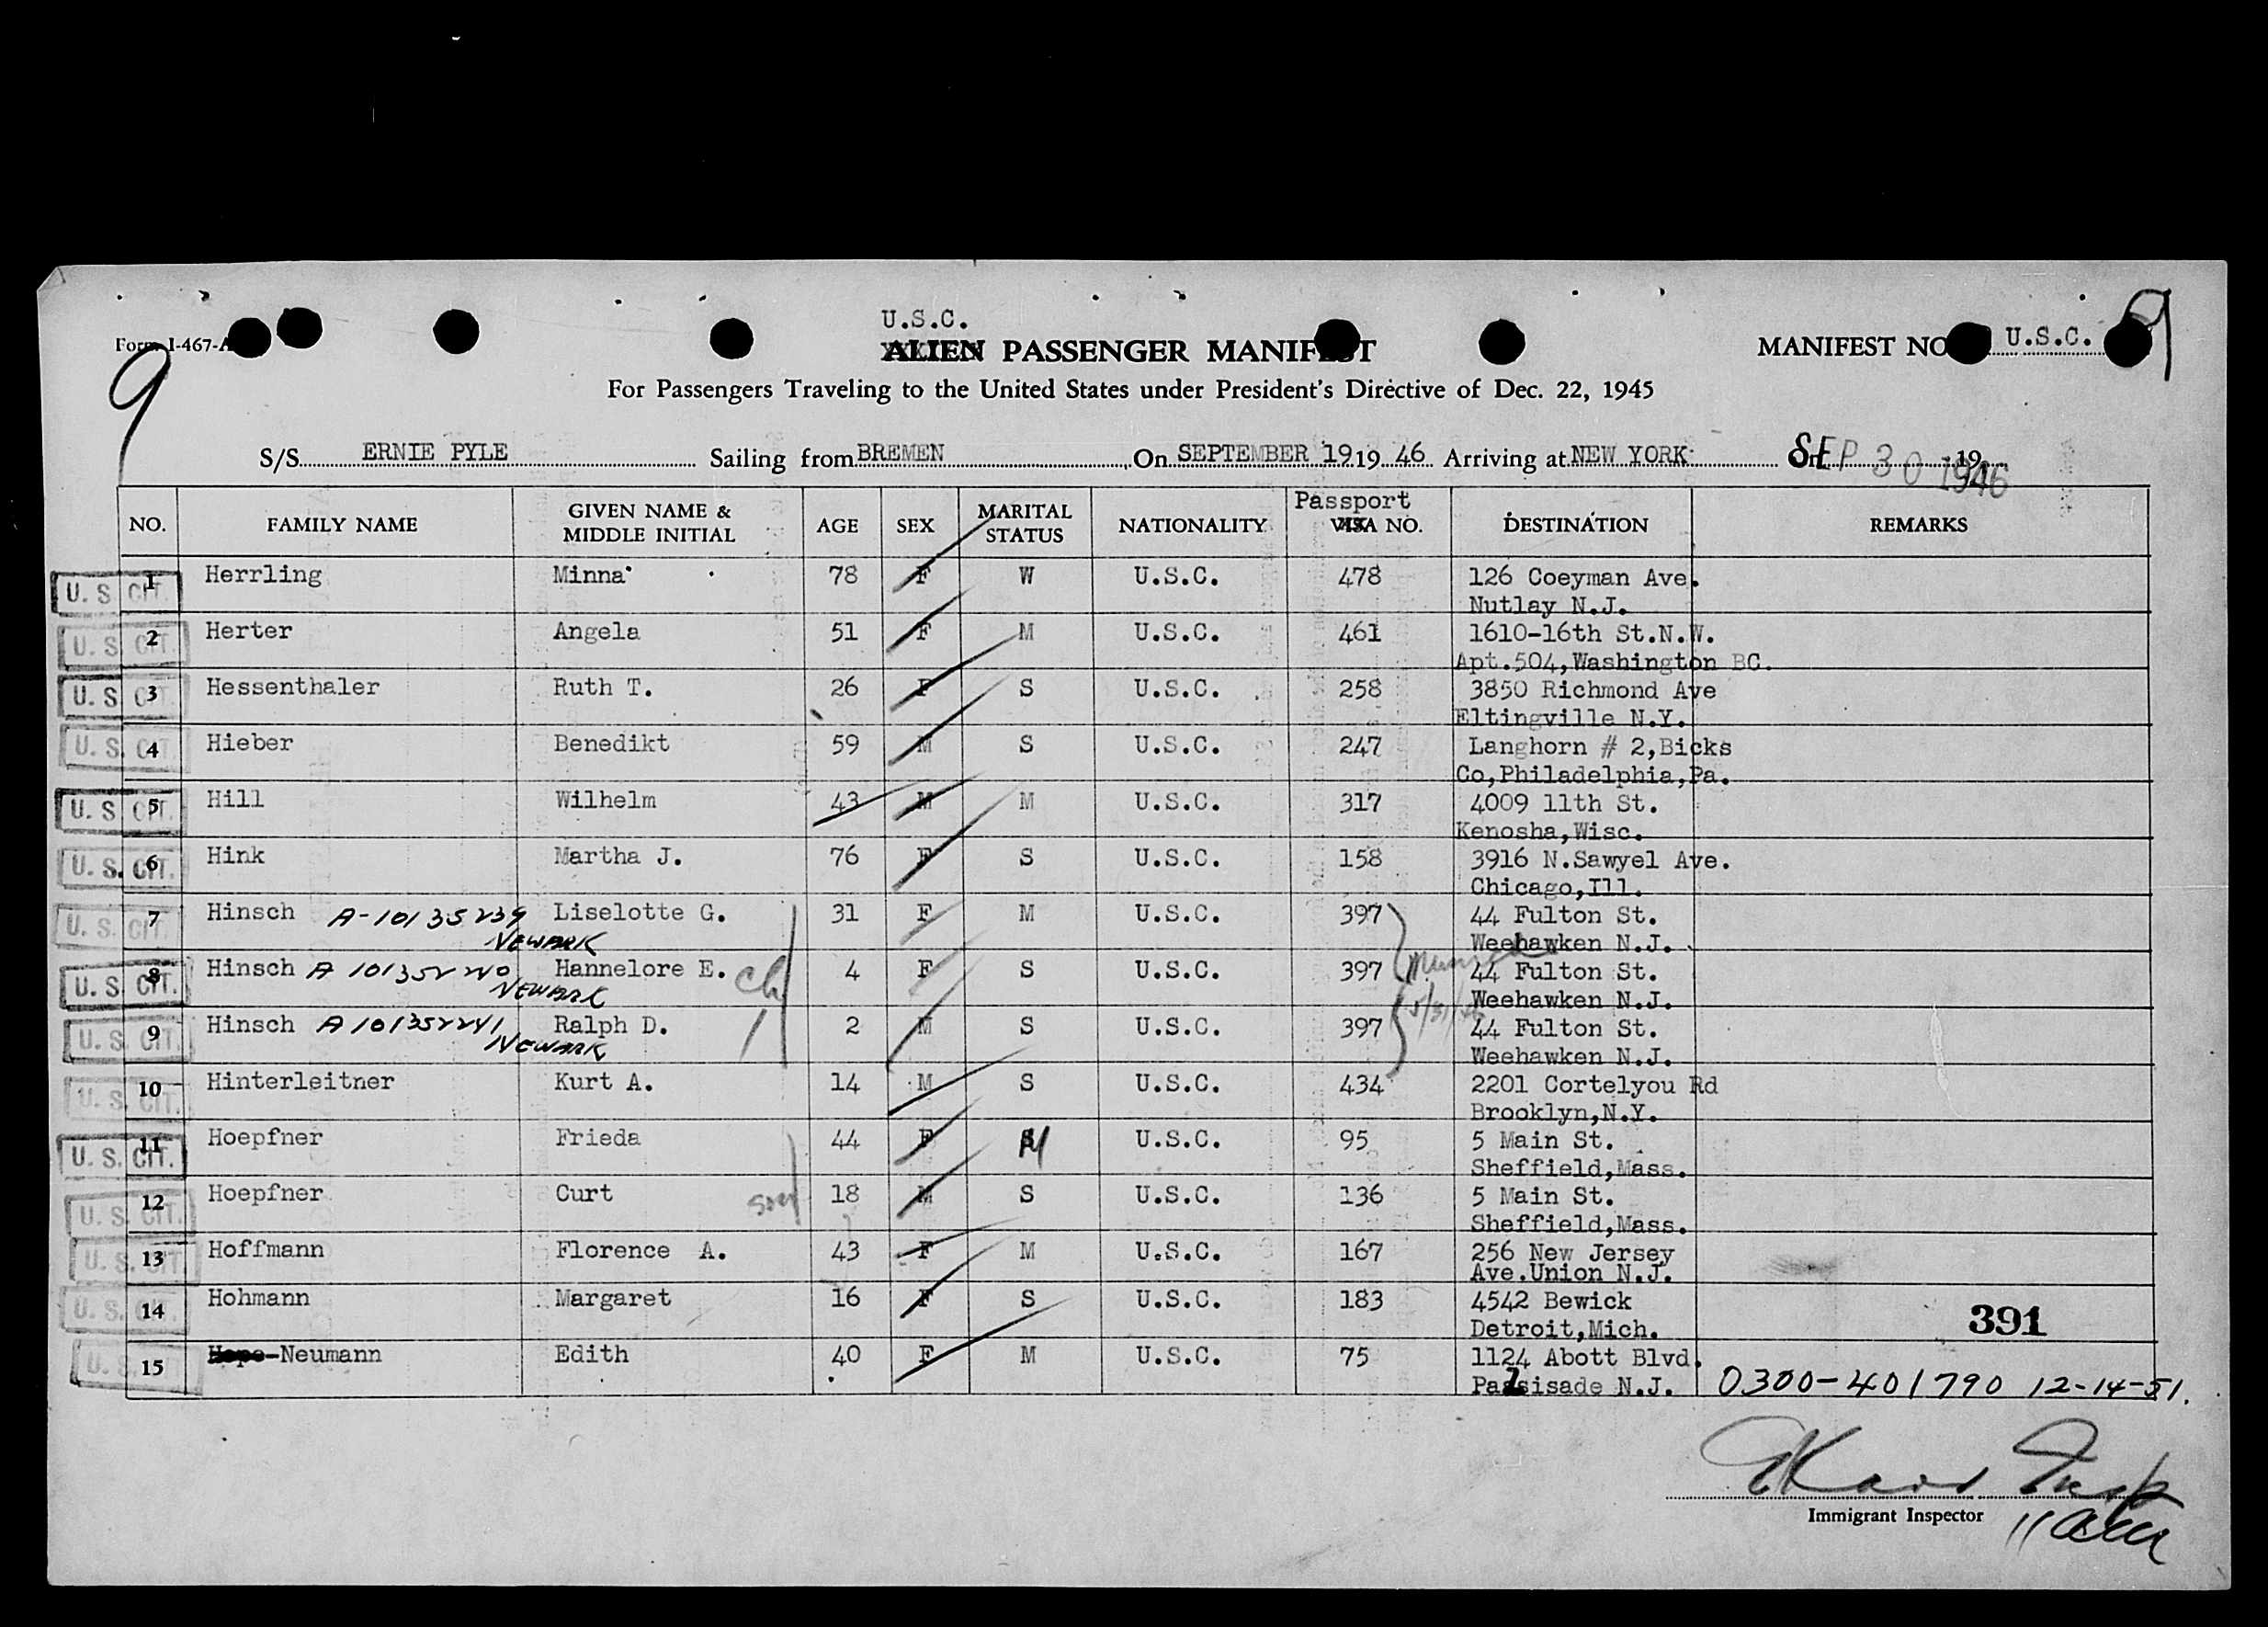 U.S.C.
Form I-467-A
ALIEN PASSENGER MANIFEST
MANIFEST NO. U.S.C.
9
9
For Passengers Traveling to the United States under President's Directive of Dec. 22, 1945
S/S ERNIE PYLE Sailing from BREMEN On SEPTEMBER 19 19 46 Arriving at NEW YORK SEP 30 1946 19
NO. FAMILY NAME GIVEN NAME & MIDDLE INITIAL AGE SEX MARITAL STATUS NATIONALITY Passport VISA NO. DESTINATION REMARKS
U. S. CIT. 1 Herrling Minna 78 F W U.S.C. 478 126 Coeyman Ave.
Nutlay N.J.
U. S. CIT. 2 Herter Angela 51 F M U.S.C. 461 1610-16th St.N.W.
Apt.504,Washington BC.
U. S. CIT. 3 Hessenthaler Ruth T. 26 F S U.S.C. 258 3850 Richmond Ave
Eltingville N.Y.
U. S. CIT. 4 Hieber Benedikt 59 M S U.S.C. 247 Langhorn # 2,Bicks
Co,Philadelphia,Pa.
U. S. CIT. 5 Hill Wilhelm 43 M M U.S.C. 317 4009 11th St.
Kenosha,Wisc.
U. S. CIT. 6 Hink Martha J. 76 F S U.S.C. 158 3916 N.Sawyel Ave.
Chicago,Ill.
U. S. CIT. 7 Hinsch A-10135239 Liselotte G. 31 F M U.S.C. 397 44 Fulton St.
NEWARK Weehawken N.J.
U. S. CIT. 8 Hinsch A 101352240 Hannelore E. ch 4 F S U.S.C. 397 44 Fulton St.
NEWARK Weehawken N.J.
U. S. CIT. 9 Hinsch A 101352241 Ralph D. 2 M S U.S.C. 397 44 Fulton St.
NEWARK Weehawken N.J.
U. S. CIT. 10 Hinterleitner Kurt A. 14 M S U.S.C. 434 2201 Cortelyou Rd
Brooklyn,N.Y.
U. S. CIT. 11 Hoepfner Frieda 44 F M U.S.C. 95 5 Main St.
Sheffield,Mass.
U. S. CIT. 12 Hoepfner Curt son 18 M S U.S.C. 136 5 Main St.
Sheffield,Mass.
U. S. CIT. 13 Hoffmann Florence A. 43 F M U.S.C. 167 256 New Jersey
Ave.Union N.J.
U. S. CIT. 14 Hohmann Margaret 16 F S U.S.C. 183 4542 Bewick
Detroit,Mich. 391
U. S. 15 Hope-Neumann Edith 40 F M U.S.C. 75 1124 Abott Blvd.
Palisisade N.J. 0300-401790 12-14-51.
Immigrant Inspector